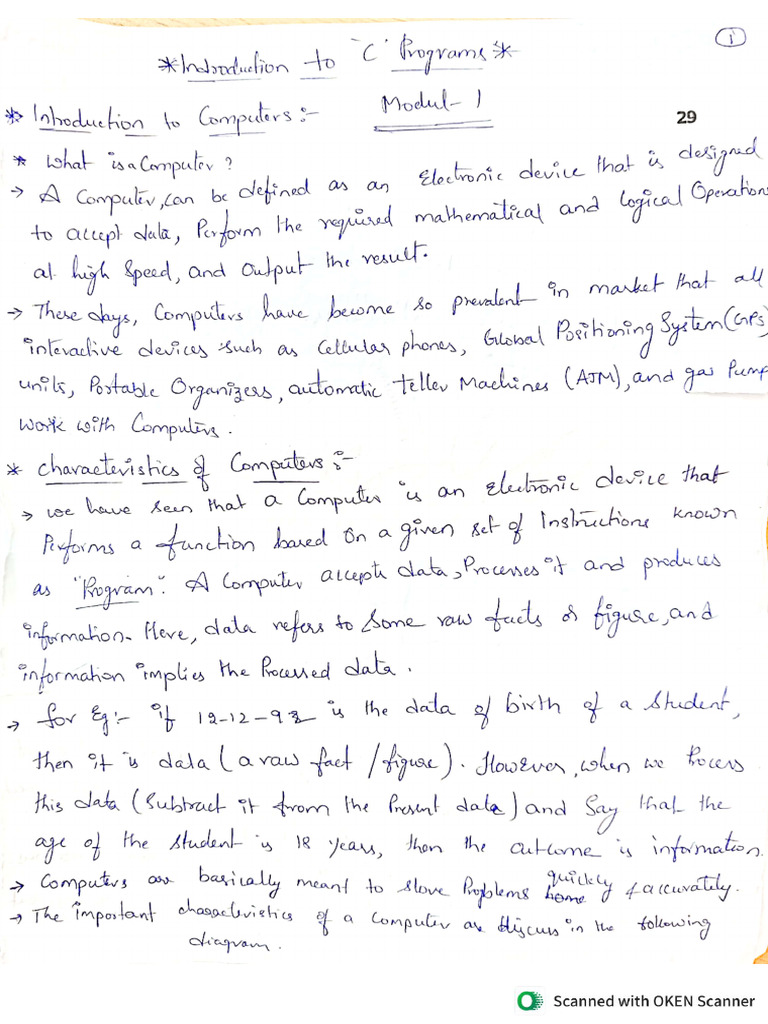 1
*Introduction to "C" Programs*
Modul-1
29
* Introduction to Computers:-
* What is a Computer?
→ A Computer, can be defined as an Electronic device that is designed
to accept data, Perform the required mathematical and Logical Operations
at high Speed, and Output the result.
→ These days, Computers have become so prevalent in market that all
interactive devices such as Cellular phones, Global Positioning System (GPS)
units, Portable Organizers, automatic Teller Machines (ATM), and gas Pump
work with Computers.
* Characteristics of Computers:-
→ we have seen that a Computer is an Electronic device that
Performs a function based on a given set of Instructions known
as "Program". A Computer accepts data, Processes it and produces
information. Here, data refers to Some raw facts or figure, and
information implies the Processed data.
→ for Eg:- if 12-12-93 is the data of birth of a Student,
then it is data (a raw fact / figure). However, when we Process
this data (Subtract it from the Present date) and Say that the
age of the student is 18 years, then the outcome is information.
→ Computers are basically meant to slove Problems quickly & accurately.
→ The important characteristics of a Computer are discuss in the following
diagram.
Scanned with OKEN Scanner